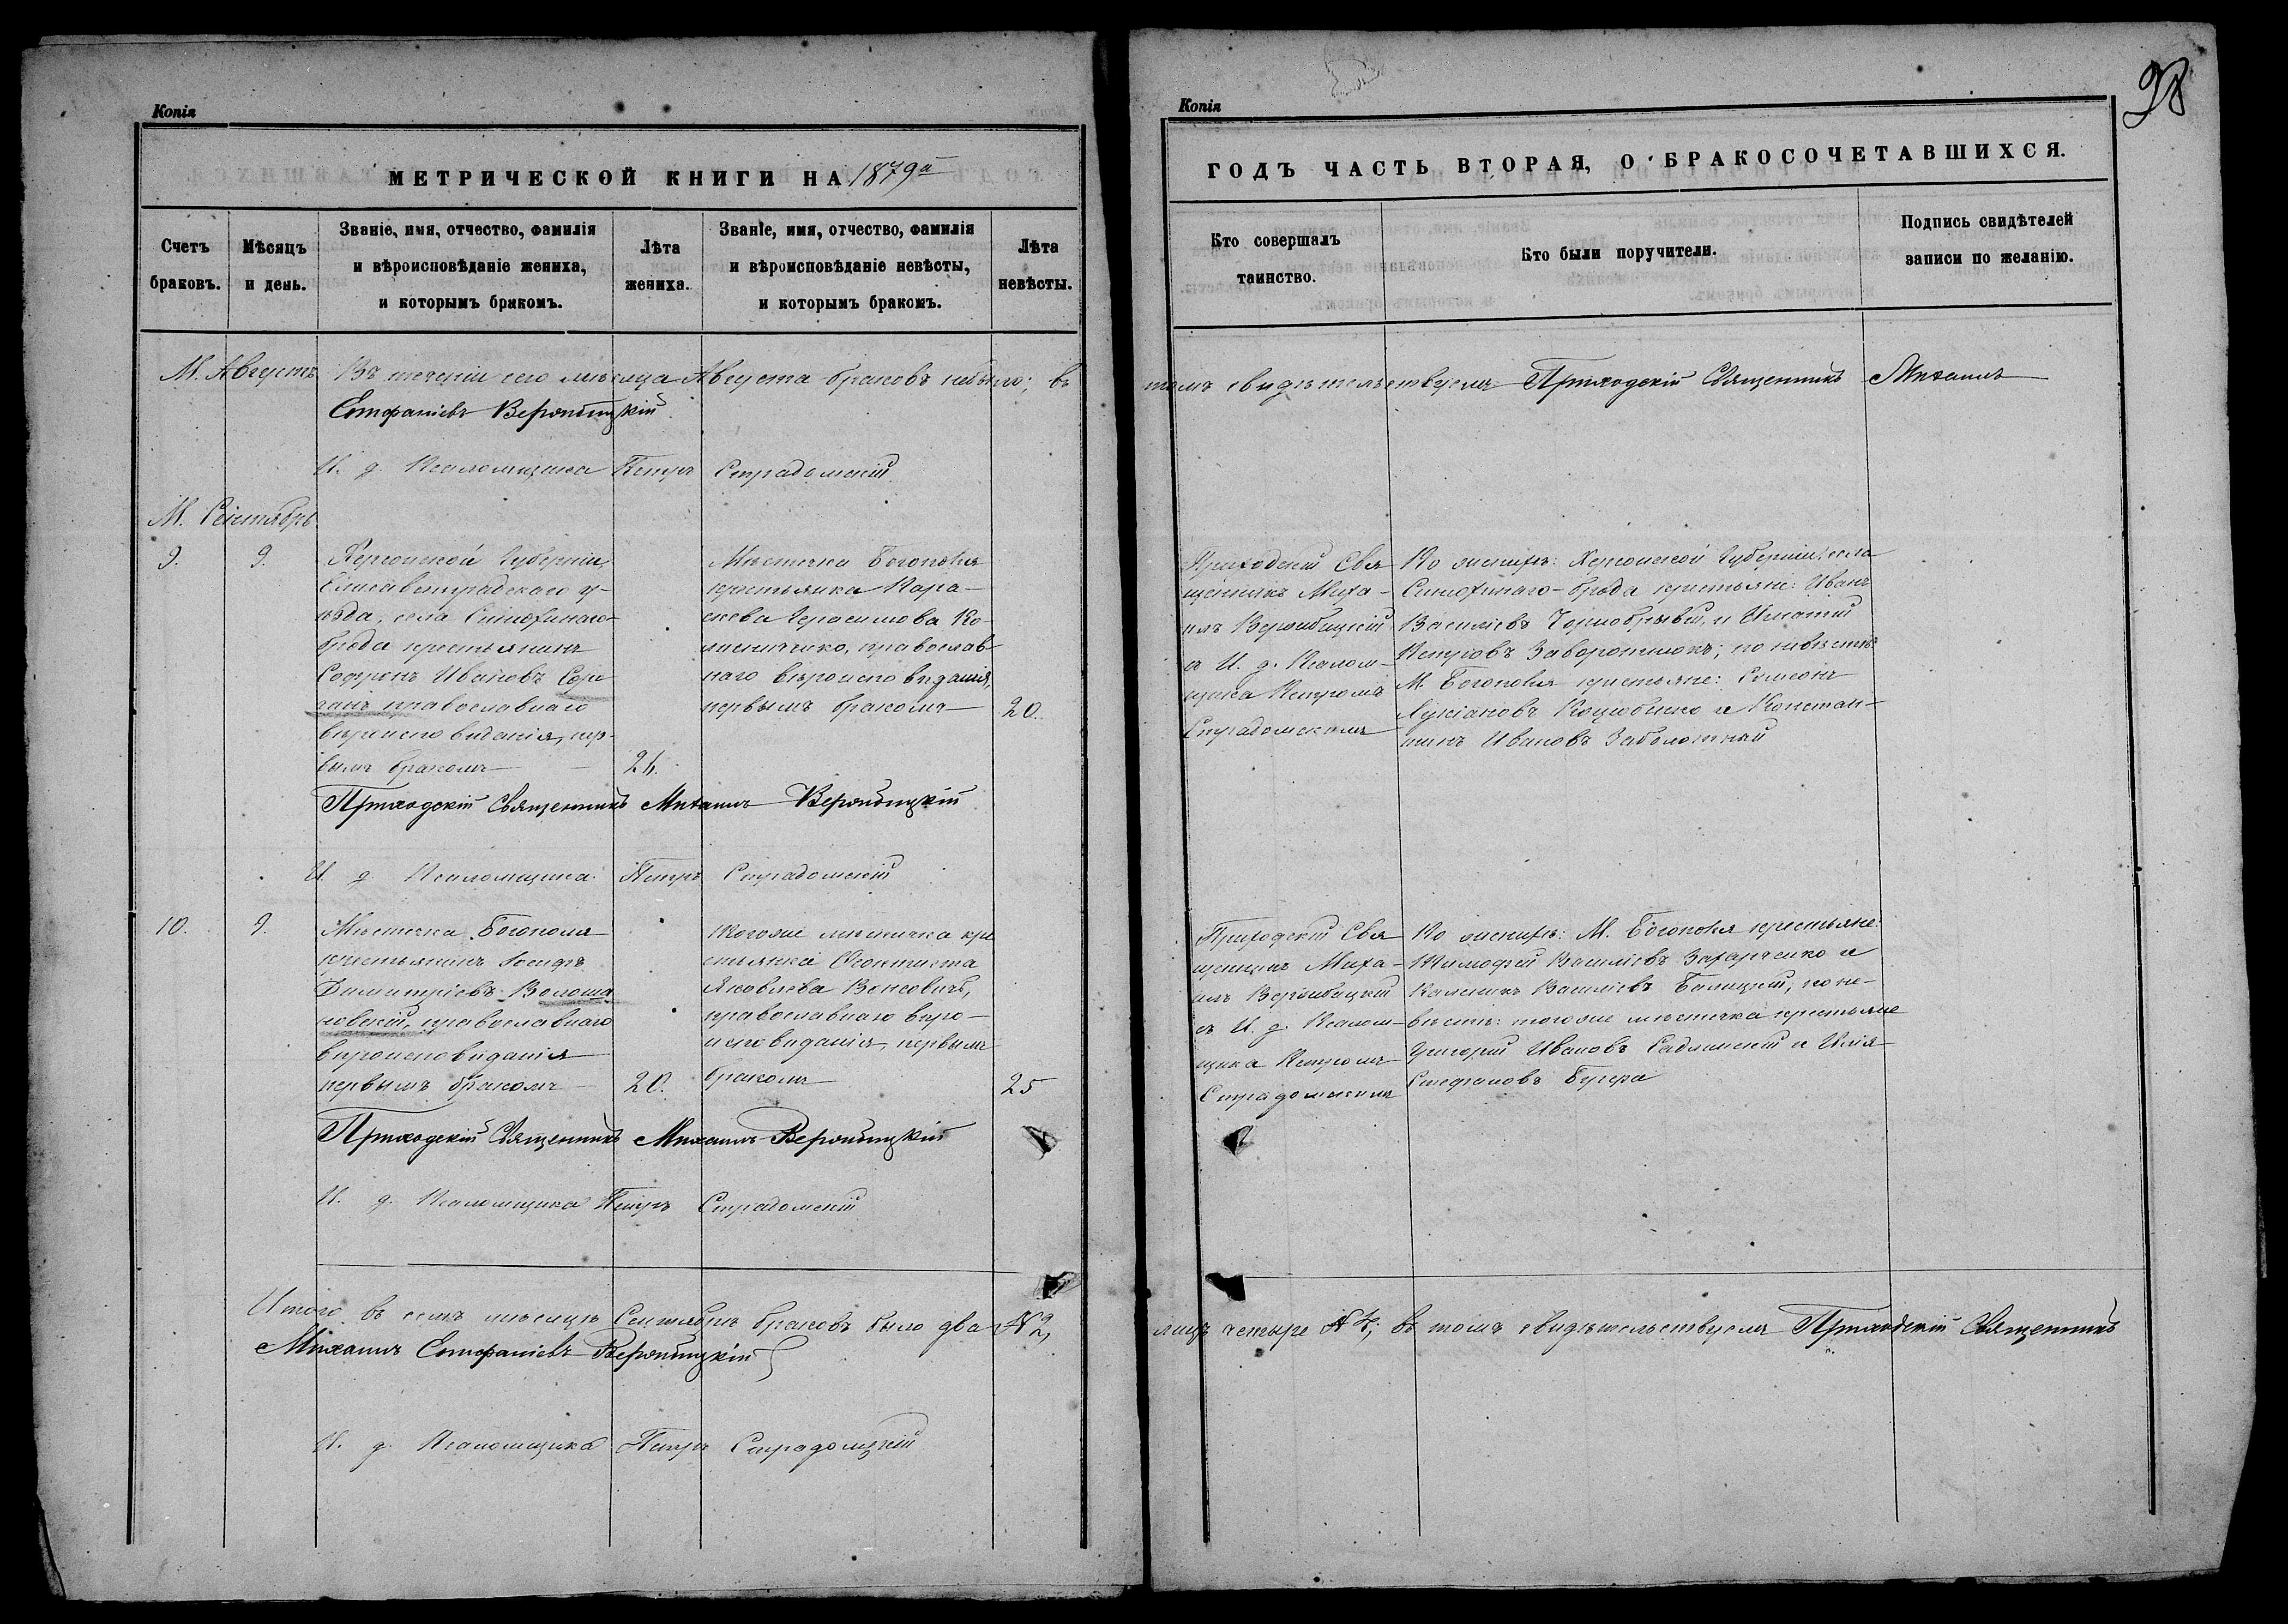 Копія
МЕТРИЧЕСКОЙ КНИГИ НА 1879й
Счетъ браковъ.
Мѣсяцъ и день.
Званіе, имя, отчество, фамилія
и вѣроисповѣданіе жениха,
и которымъ бракомъ.
Лѣта жениха.
Званіе, имя, отчество, фамилія
и вѣроисповѣданіе невѣсты,
и которымъ бракомъ.
Лѣта невѣсты.
М. Августъ Въ теченіи сего мѣсяца Августа браковъ небыло; въ
Епифаніевъ Вержбицкій
И. д. Псаломщика Петръ Страдомскій
М. Сентябрь
9. 9.
Херсонской Губерніи,
Елисаветградскаго у-
ѣзда, села Синюхинаго-
брода крестьянинъ
Софронъ Ивановъ
православнаго
вѣроисповѣданія, пер-
вымъ бракомъ
24.
Мѣстечка Богополя
крестьянка Пара-
скева Герасимова Ко-
православ-
наго вѣроисповѣданія,
первымъ бракомъ
20.
Приходскій Священникъ Михаилъ Вержбицкій
И. д. Псаломщика Петръ Страдомскій
10. 9.
Мѣстечка Богополя
крестьянинъ Іосифъ
Димитріевъ Волоша
новскій, православнаго
вѣроисповѣданія
первымъ бракомъ
20.
Тогоже мѣстечка кре
стьянка Ѳеоктиста
Яковлева
православнаго вѣро-
исповѣданія, первымъ
бракомъ
25
Приходскій Священникъ Михаилъ Вержбицкій
И. д. Псаломщика Петръ Страдомскій
Итого въ семъ мѣсяцѣ Сентябрѣ браковъ было два № 2,
Михаилъ Епифаніевъ Вержбицкій
И. д. Псаломщика Петръ Страдомскій
Копія
98
ГОДЪ ЧАСТЬ ВТОРАЯ, О БРАКОСОЧЕТАВШИХСЯ.
Кто совершалъ таинство.
Кто были поручители.
Подпись свидѣтелей
записи по желанію.
томъ свидѣтельствуемъ Приходскій Священникъ Михаилъ
Приходскій Свя
щенникъ Миха-
илъ Вержбицкій
съ И. д. Псалом-
щика Петромъ
Страдомскимъ
По женихѣ: Херсонской Губерніи, села
Синюхинаго-брода крестьяне: Иванъ
Василіевъ Чернобрывый, и Игнатій
Петровъ Заворотнюкъ; по невѣстѣ:
М. Богополя крестьяне: Симеонъ
Лукіановъ Коцюбинко и Констан-
тинъ Ивановъ Заболотный
Приходскій Свя
щенникъ Миха-
илъ Вержбицкій
съ И. д. Псалом-
щика Петромъ
Страдомскимъ
По женихѣ: М. Богополя крестьяне:
Тимофей Василіевъ Захарченко и
Калиникъ Василіевъ Балицкій, по не-
вѣстѣ: тогоже мѣстечка крестьяне
Григорій Ивановъ Садлинскій и Илія
Стефановъ Бугра
лицъ четыре № 4; въ томъ свидѣтельствуемъ Приходскій Священникъ